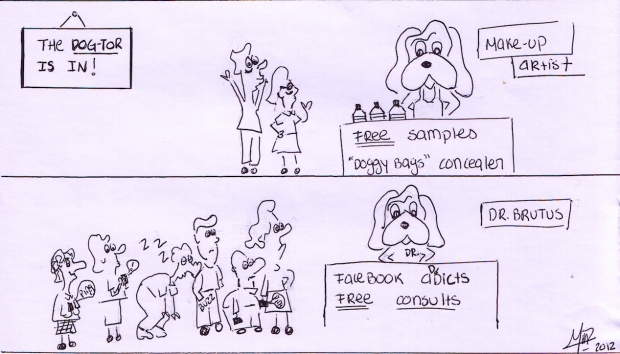 THE DOG-TOR
IS IN!
MAKE-UP
artist
FREE samples
"DOGGY BAGS" concealer
Z Z Z
BUZZ
DR. BRUTUS
DR.
FaceBook aDDicts
FREE consults
2012